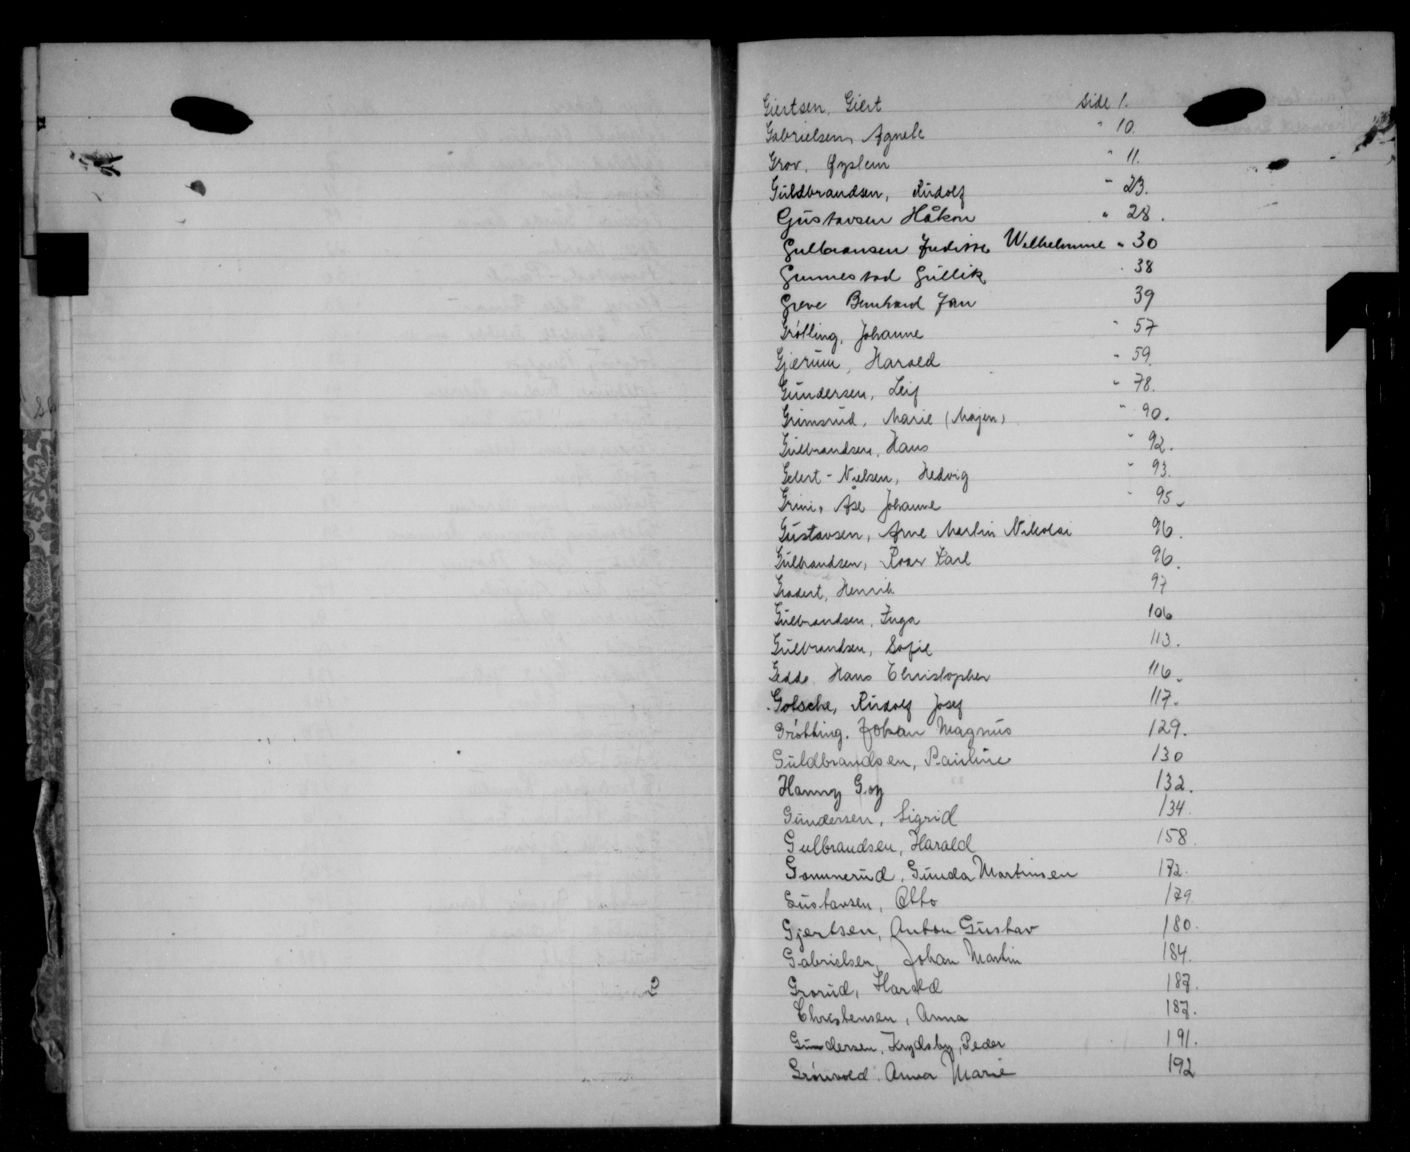 Giertsen, Giert Side 1.
Gabrielsen, Agnete " 10.
Grov, Øystein " 11.
Guldbrandsen, Rudolf " 23.
Gustavsen Håkon " 28.
Gulbransen Wilhelmine " 30
Gunnestad Gullik 38
Greve Bernhard Jan 39
Grøtling, Johanne " 57
Gjerum, Harald " 59.
Gundersen, Leif " 78.
Grimsrud, Marie (Majen) " 90.
Gulbrandsen, Hans " 92.
Gelert-Nielsen, Hedvig " 93.
Grini, Åse Johanne " 95.
Gustavsen, Arne Martin Nikolai 96.
Gulbrandsen, Roar Carl 96.
Henrik 97
Gulbrandsen, Inga 106
Gulbrandsen, Sofie 113.
Gedde Hans Christopher 116.
Gotsche, Rudolf Josef 117.
Grøtting, Johan Magnus 129.
Guldbrandsen, Pauline 130
Hanny Goy 132.
Gundersen, Sigrid 134.
Gulbrandsen, Harald 158.
Gommerud, Gunda Martinsen 172.
Gustavsen, Otto 179.
Gjertsen, Anton Gustav 180.
Gabrielsen, Johan Martin 184.
2
Grorud, Harald 187.
Christensen, Anna 187.
Gundersen, Krydsby, Peder 191.
Grønvold. Anna Marie 192